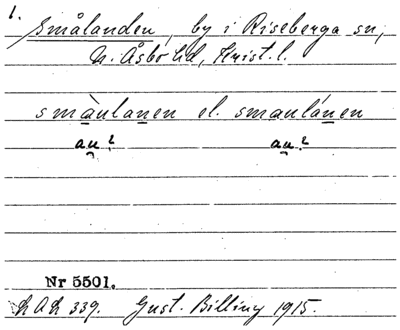 1.
Smålanden, by i Riseberga sn,
N. Åsbo hd, Krist. l.
smàulanen el. smaulánen
au? au?
Nr 5501.
LAL 339. Gust. Billing 1915.